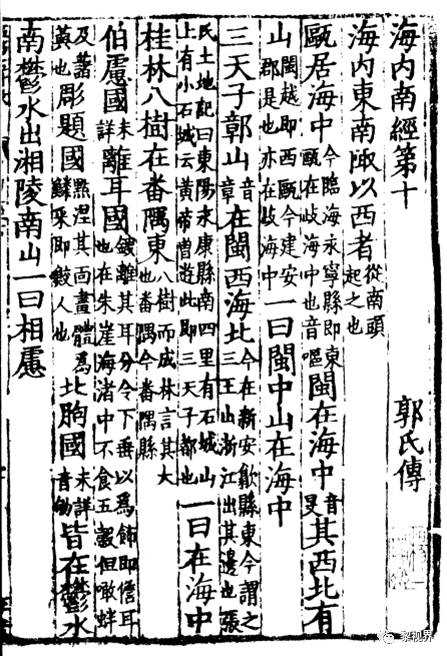 海内南經第十　郭氏傳
海内東南陬以西者從南頭起之也
甌居海中今臨海永寧縣即東甌在歧海中也音嘔閩在海中音旻其西北有
山閩越即西甌今建安郡是也亦在歧海中一曰閩中山在海中
三天子鄣山音章在閩西海北今在新安歙縣東今謂之三王山浙江出其邊也張
氏土地記曰東陽永康縣南四里有石城山上有小石城云黄帝曾遊此即三天子都也一曰在海中
桂林八樹在番隅東八樹而成林言其大也番隅今番隅縣
伯慮國未詳離耳國鎪離其耳分令下垂以爲飾即儋耳也在朱崖海渚中不食五穀但噉蚌
及藷藇也彫題國點涅其面畫體爲鱗采即鮫人也北朐國未詳音劬皆在鬱水
南鬱水出湘陵南山一曰相慮
黎视界